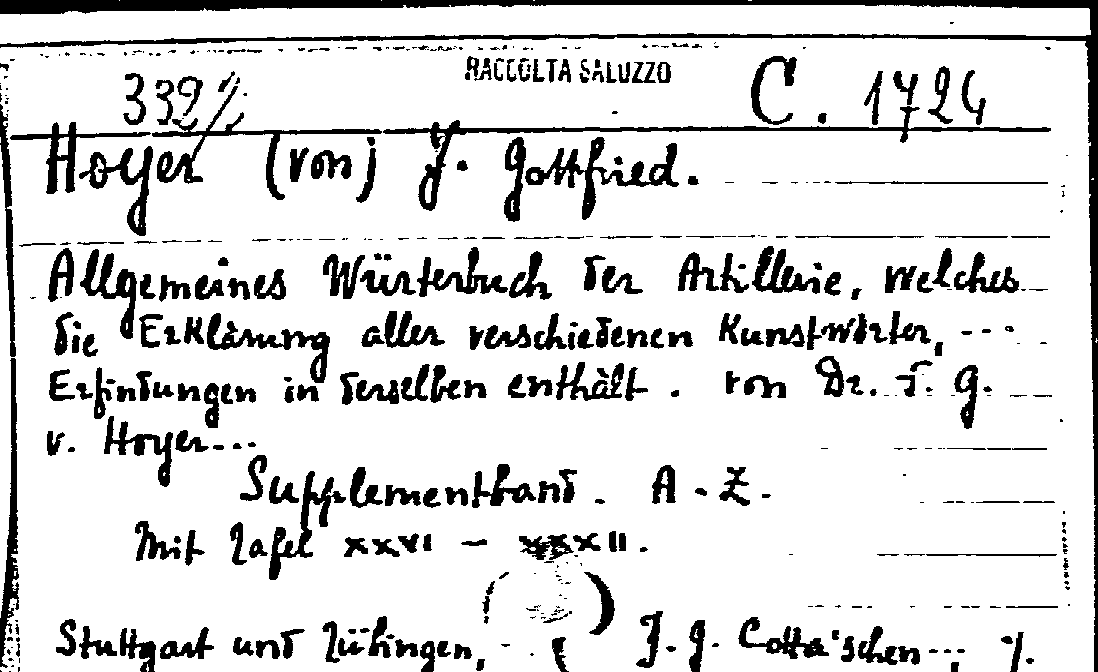 RACCOLTA SALUZZO
C. 1724
Hoyer (von) J. Gottfried.
Allgemeines Würterbuch der Artillerie, welches
die Erklärung aller verschiedenen Kunstwörter, ---
Erfindungen in derselben enthält. von Dr. J. G.
v. Hoyer---
Supplementband. A-Z.
Mit Tafel XXVI - XXXII.
Stuttgart und Tübingen, J. G. Cotta'schen---,